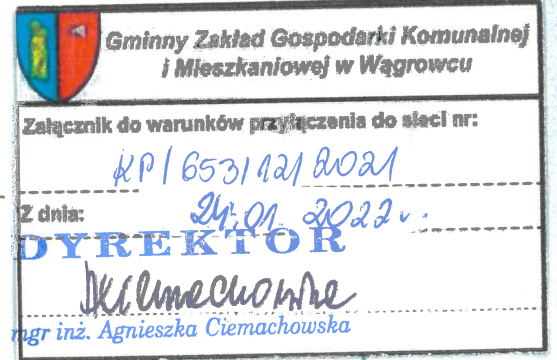 Gminny Zakład Gospodarki Komunalnej
i Mieszkaniowej w Wągrowcu
Załącznik do warunków przyłączenia do sieci nr:
KP/653/12/2021
Z dnia: 24.01.2022r.
DYREKTOR
mgr inż. Agnieszka Ciemachowska